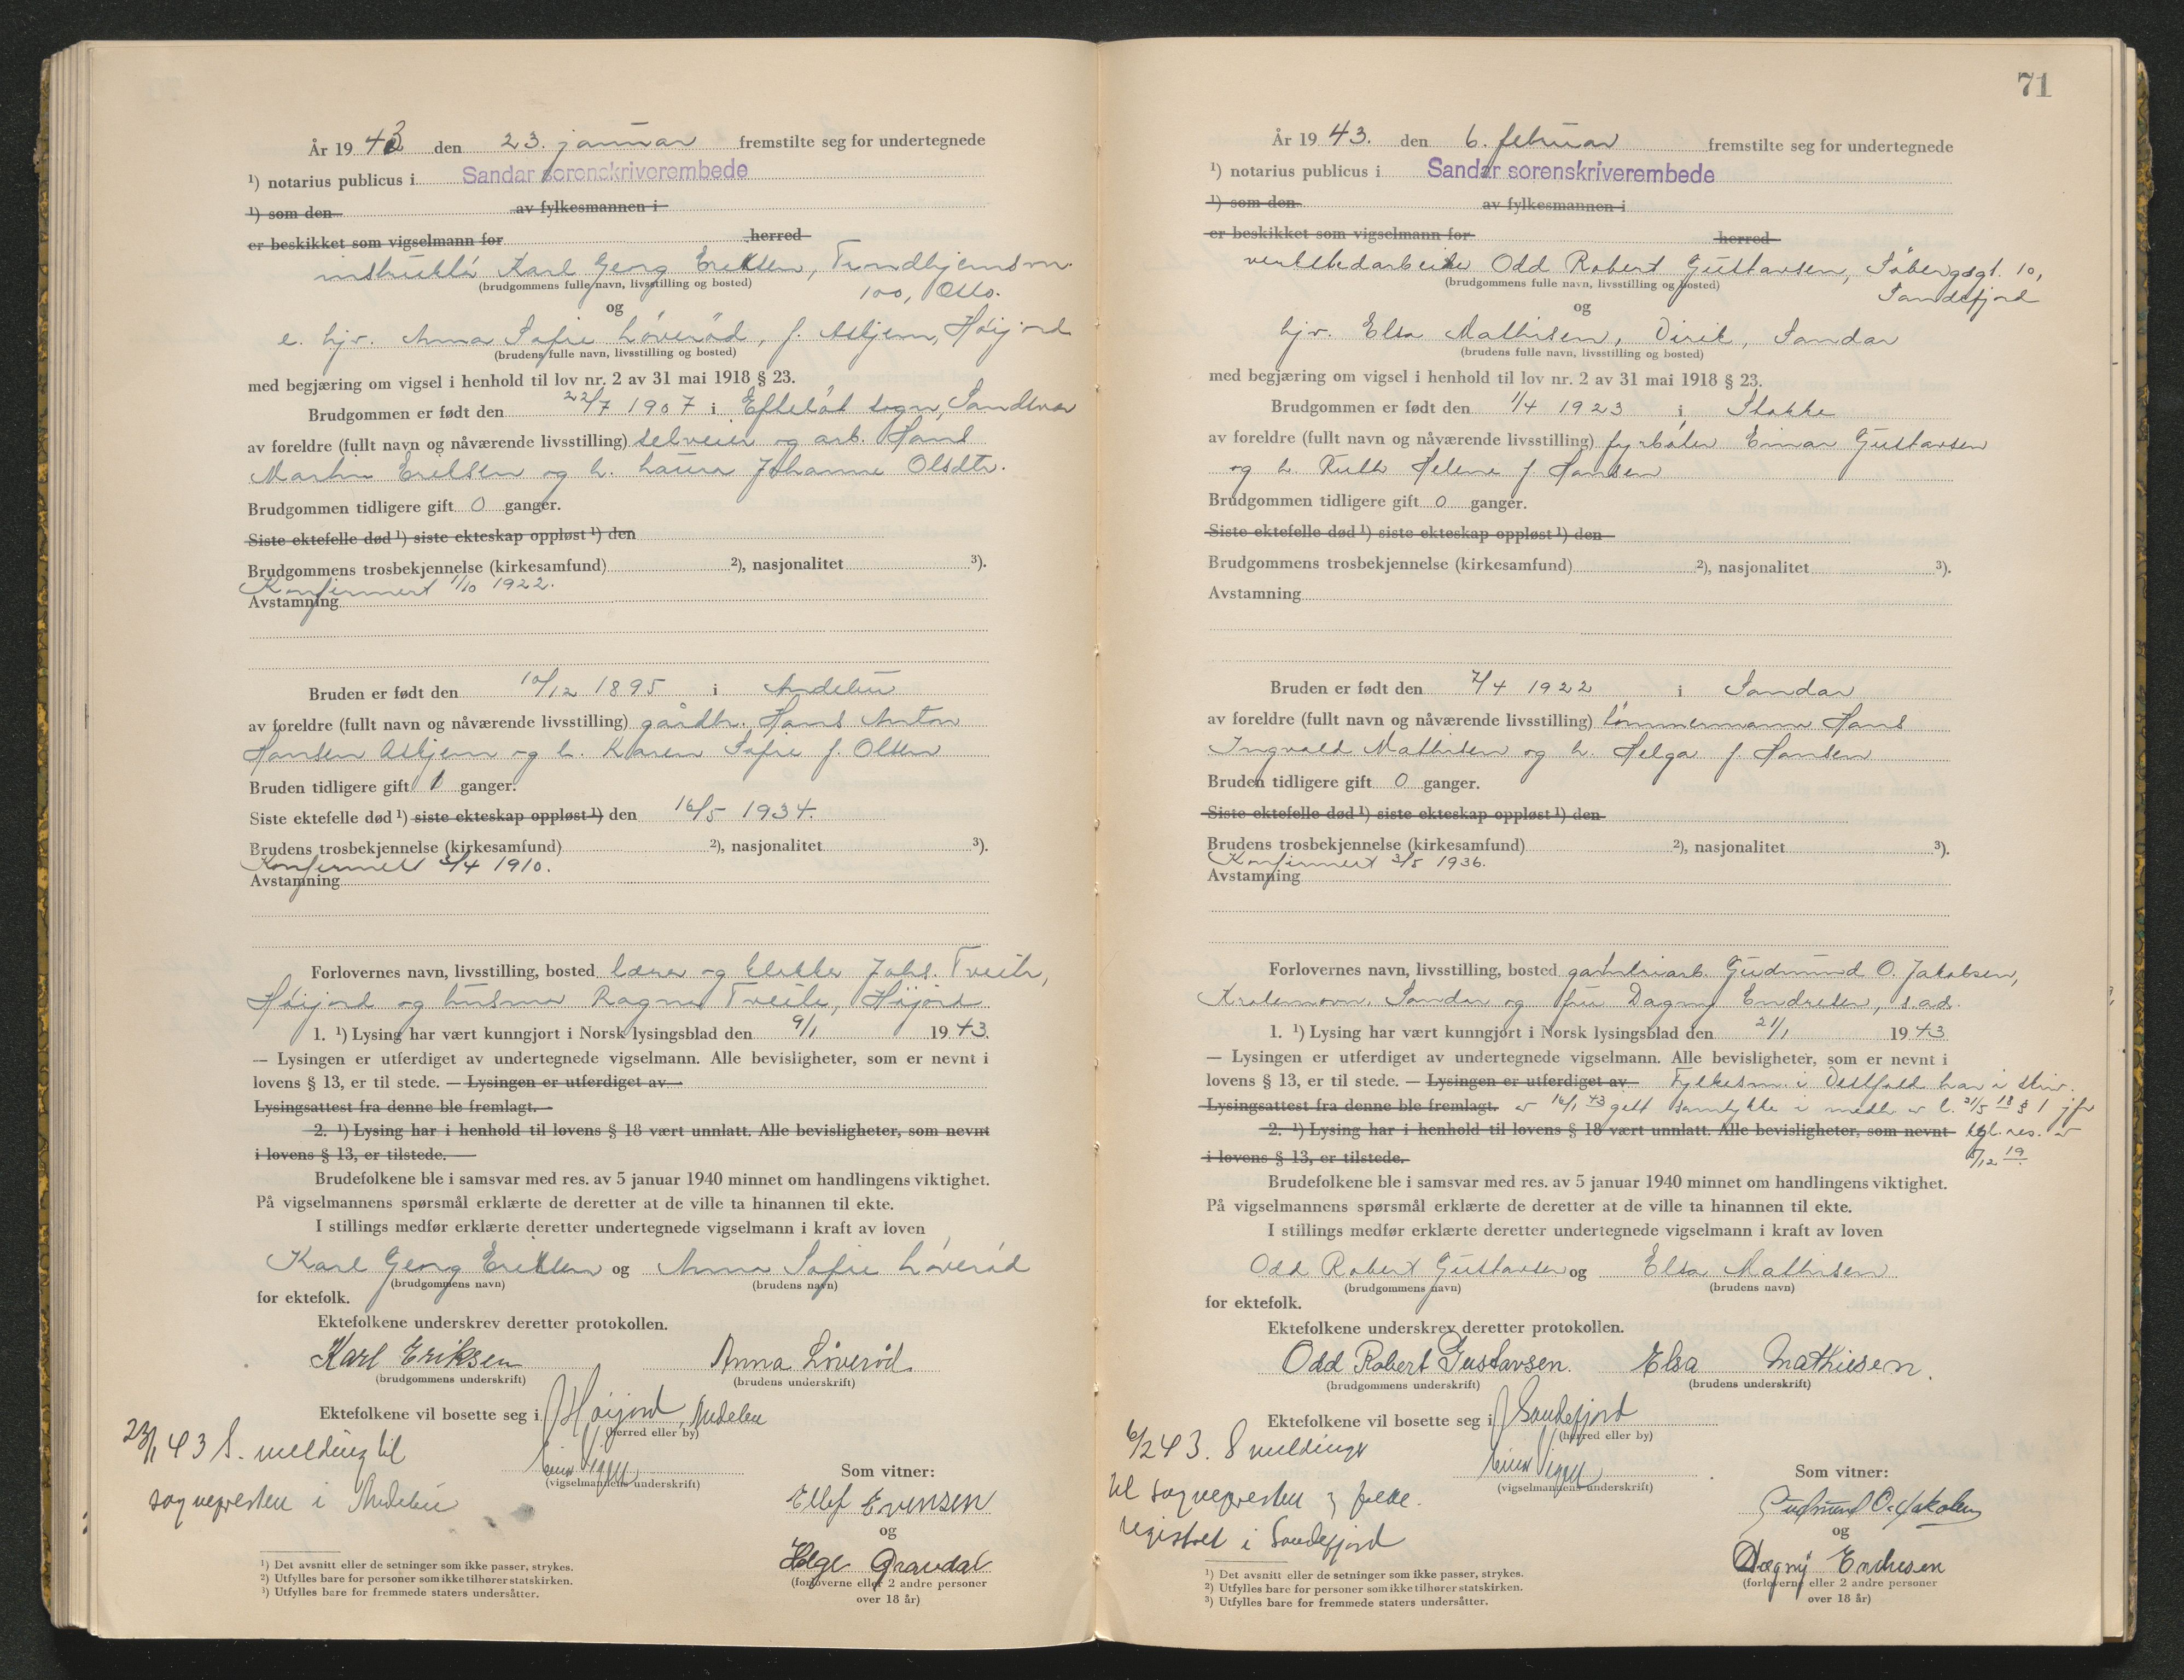 År 19 43 den 23. januar fremstilte seg for undertegnede
1) notarius publicus i Sandar sorenskriverembede
1) som den av fylkesmannen i
er beskikket som vigselmann for herred
instruktør Karl Georg Eriksen, Trondhjemsvn.
(brudgommens fulle navn, livsstilling og bosted)
100, Oslo.
og
e. hjv. Anna Sofie Løverød, f. Askjem, Høijord
(brudens fulle navn, livsstilling og bosted)
med begjæring om vigsel i henhold til lov nr. 2 av 31 mai 1918 § 23.
Brudgommen er født den 22/7 1907 i Efteløt sogn, Sandsvær
av foreldre (fullt navn og nåværende livsstilling) selveier og arb. Hans
Martin Eriksen og h. Laura Johanne Olsdtr.
Brudgommen tidligere gift 0 ganger.
Siste ektefelle død 1) siste ekteskap oppløst 1) den
Brudgommens trosbekjennelse (kirkesamfund) 2), nasjonalitet 3).
Konfirmert 1/10 1922.
Avstamning
Bruden er født den 10/12 1895 i Andebu
av foreldre (fullt navn og nåværende livsstilling) gårdbr. Hans Anton
Hansen Askjem og h. Karen Sofie f. Olsen
Bruden tidligere gift 1 ganger.
Siste ektefelle død 1) siste ekteskap oppløst 1) den 16/5 1934.
Brudens trosbekjennelse (kirkesamfund) 2), nasjonalitet 3).
Konfirmert 3/4 1910.
Avstamning
Forlovernes navn, livsstilling, bosted lærer og klokker Johs. Tveite,
Høijord og husmor Ragna Tveite, Høijord
1. 1) Lysing har vært kunngjort i Norsk lysingsblad den 9/1 1943.
— Lysingen er utferdiget av undertegnede vigselmann. Alle bevisligheter, som er nevnt i
lovens § 13, er til stede. — Lysingen er utferdiget av
Lysingsattest fra denne ble fremlagt. —
2. 1) Lysing har i henhold til lovens § 18 vært unnlatt. Alle bevisligheter, som nevnt
i lovens § 13, er tilstede. —
Brudefolkene ble i samsvar med res. av 5 januar 1940 minnet om handlingens viktighet.
På vigselmannens spørsmål erklærte de deretter at de ville ta hinannen til ekte.
I stillings medfør erklærte deretter undertegnede vigselmann i kraft av loven
Karl Georg Eriksen og Anna Sofie Løverød
(brudgommens navn) (brudens navn)
for ektefolk.
Ektefolkene underskrev deretter protokollen.
Karl Eriksen Anna Løverød
(brudgommens underskrift) (brudens underskrift)
Ektefolkene vil bosette seg i Høijord, Andebu
(herred eller by)
23/1 43 S. melding til
sognepresten i Andebu
(vigselmannens underskrift)
Som vitner:
Ellef Evensen
og
Helge Gravdal
(forloverne eller 2 andre personer
over 18 år)
1) Det avsnitt eller de setninger som ikke passer, strykes.
2) Utfylles bare for personer som ikke tilhører statskirken.
3) Utfylles bare for fremmede staters undersåtter.
71
År 19 43. den 6. februar fremstilte seg for undertegnede
1) notarius publicus i Sandar sorenskriverembede
1) som den av fylkesmannen i
er beskikket som vigselmann for herred
verkstedarbeider Odd Robert Gustavsen, Søbergsgt. 10,
(brudgommens fulle navn, livsstilling og bosted)
Sandefjord
og
hjv. Elsa Mathisen, Virik, Sandar
(brudens fulle navn, livsstilling og bosted)
med begjæring om vigsel i henhold til lov nr. 2 av 31 mai 1918 § 23.
Brudgommen er født den 1/4 1923 i Stokke
av foreldre (fullt navn og nåværende livsstilling) fyrbøter Einar Gustavsen
og h. Ruth Helene f. Hansen
Brudgommen tidligere gift 0 ganger.
Siste ektefelle død 1) siste ekteskap oppløst 1) den
Brudgommens trosbekjennelse (kirkesamfund) 2), nasjonalitet 3).
Avstamning
Bruden er født den 7/4 1922 i Sandar
av foreldre (fullt navn og nåværende livsstilling) tømmermann Hans
Ingvald Mathisen og h. Helga f. Hansen
Bruden tidligere gift 0 ganger.
Siste ektefelle død 1) siste ekteskap oppløst 1) den
Brudens trosbekjennelse (kirkesamfund) 2), nasjonalitet 3).
Konfirmert 3/5 1936.
Avstamning
Forlovernes navn, livsstilling, bosted gartneriarb. Gudmund O. Jakobsen,
Sandar og fru Dagny Endresen, s.ads.
1. 1) Lysing har vært kunngjort i Norsk lysingsblad den 21/1 1943
— Lysingen er utferdiget av undertegnede vigselmann. Alle bevisligheter, som er nevnt i
lovens § 13, er til stede. — Lysingen er utferdiget av Fylkesm. i Vestfold har i skriv.
Lysingsattest fra denne ble fremlagt. av 16/1 43 gitt samtykke i medh. av l. 31/5 18 § 1 jfr
2. 1) Lysing har i henhold til lovens § 18 vært unnlatt. Alle bevisligheter, som nevnt kgl. res. av
i lovens § 13, er tilstede. 5/12 19
Brudefolkene ble i samsvar med res. av 5 januar 1940 minnet om handlingens viktighet.
På vigselmannens spørsmål erklærte de deretter at de ville ta hinannen til ekte.
I stillings medfør erklærte deretter undertegnede vigselmann i kraft av loven
Odd Robert Gustavsen og Elsa Mathisen
(brudgommens navn) (brudens navn)
for ektefolk.
Ektefolkene underskrev deretter protokollen.
Odd Robert Gustavsen. Elsa Mathiesen.
(brudgommens underskrift) (brudens underskrift)
Ektefolkene vil bosette seg i Sandefjord
(herred eller by)
6/2 43. S meldinger
til sognepresten og folke.
registret i Sandefjord
(vigselmannens underskrift)
Som vitner:
Gudmund O. Jakobsen
og
Dagny Endresen
(forloverne eller 2 andre personer
over 18 år)
1) Det avsnitt eller de setninger som ikke passer, strykes.
2) Utfylles bare for personer som ikke tilhører statskirken.
3) Utfylles bare for fremmede staters undersåtter.